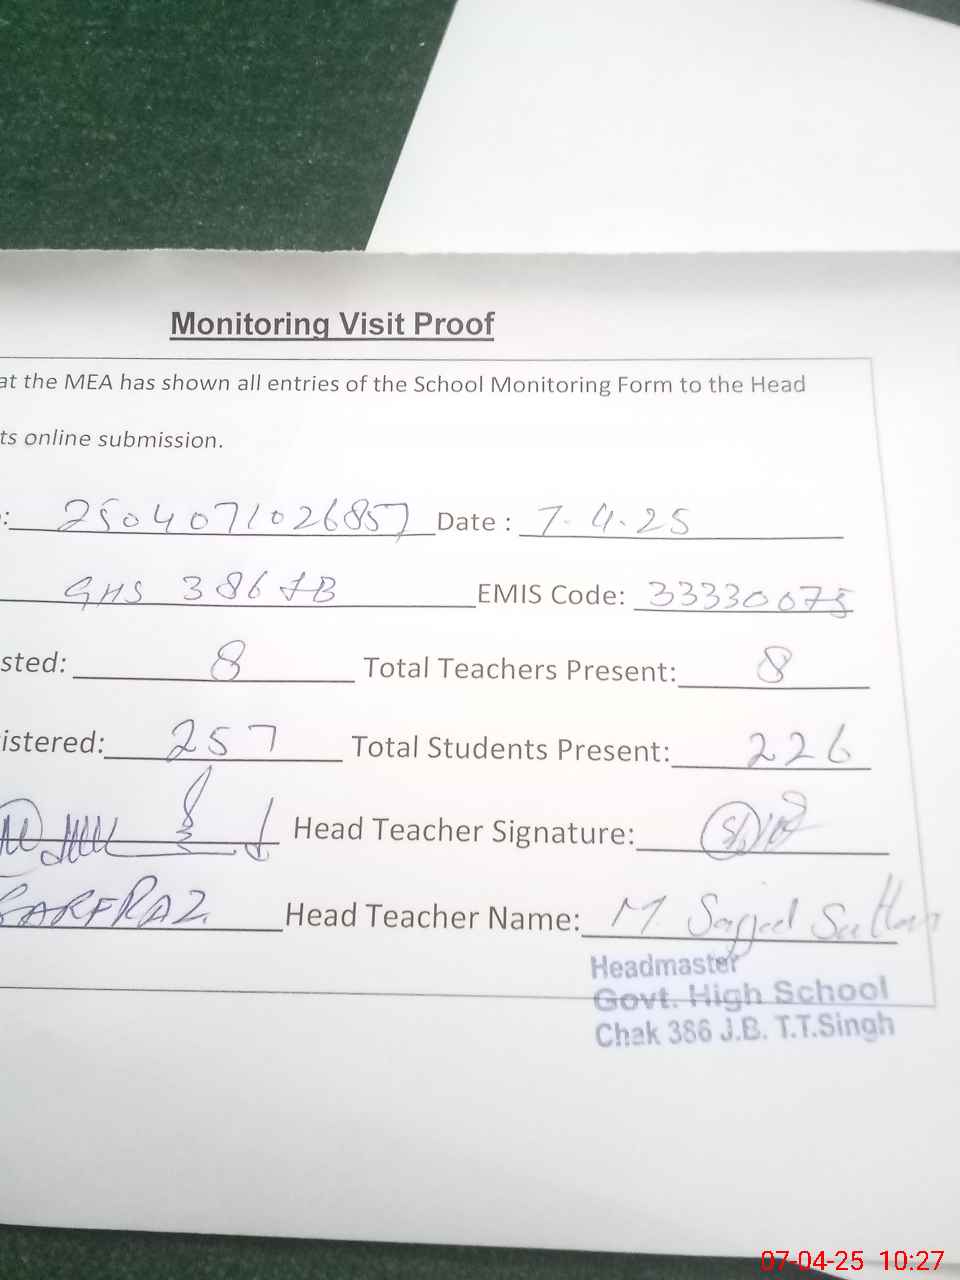 Monitoring Visit Proof
at the MEA has shown all entries of the School Monitoring Form to the Head
ts online submission.
: 2504071026857 Date : 7.4.25
GHS 386 JB EMIS Code: 33330075
sted: 8 Total Teachers Present: 8
istered: 257 Total Students Present: 226
Head Teacher Signature:
SARFRAZ Head Teacher Name: M. Sajjeel Sultan
Headmaster
Govt. High School
Chak 386 J.B. T.T.Singh
07-04-25 10:27